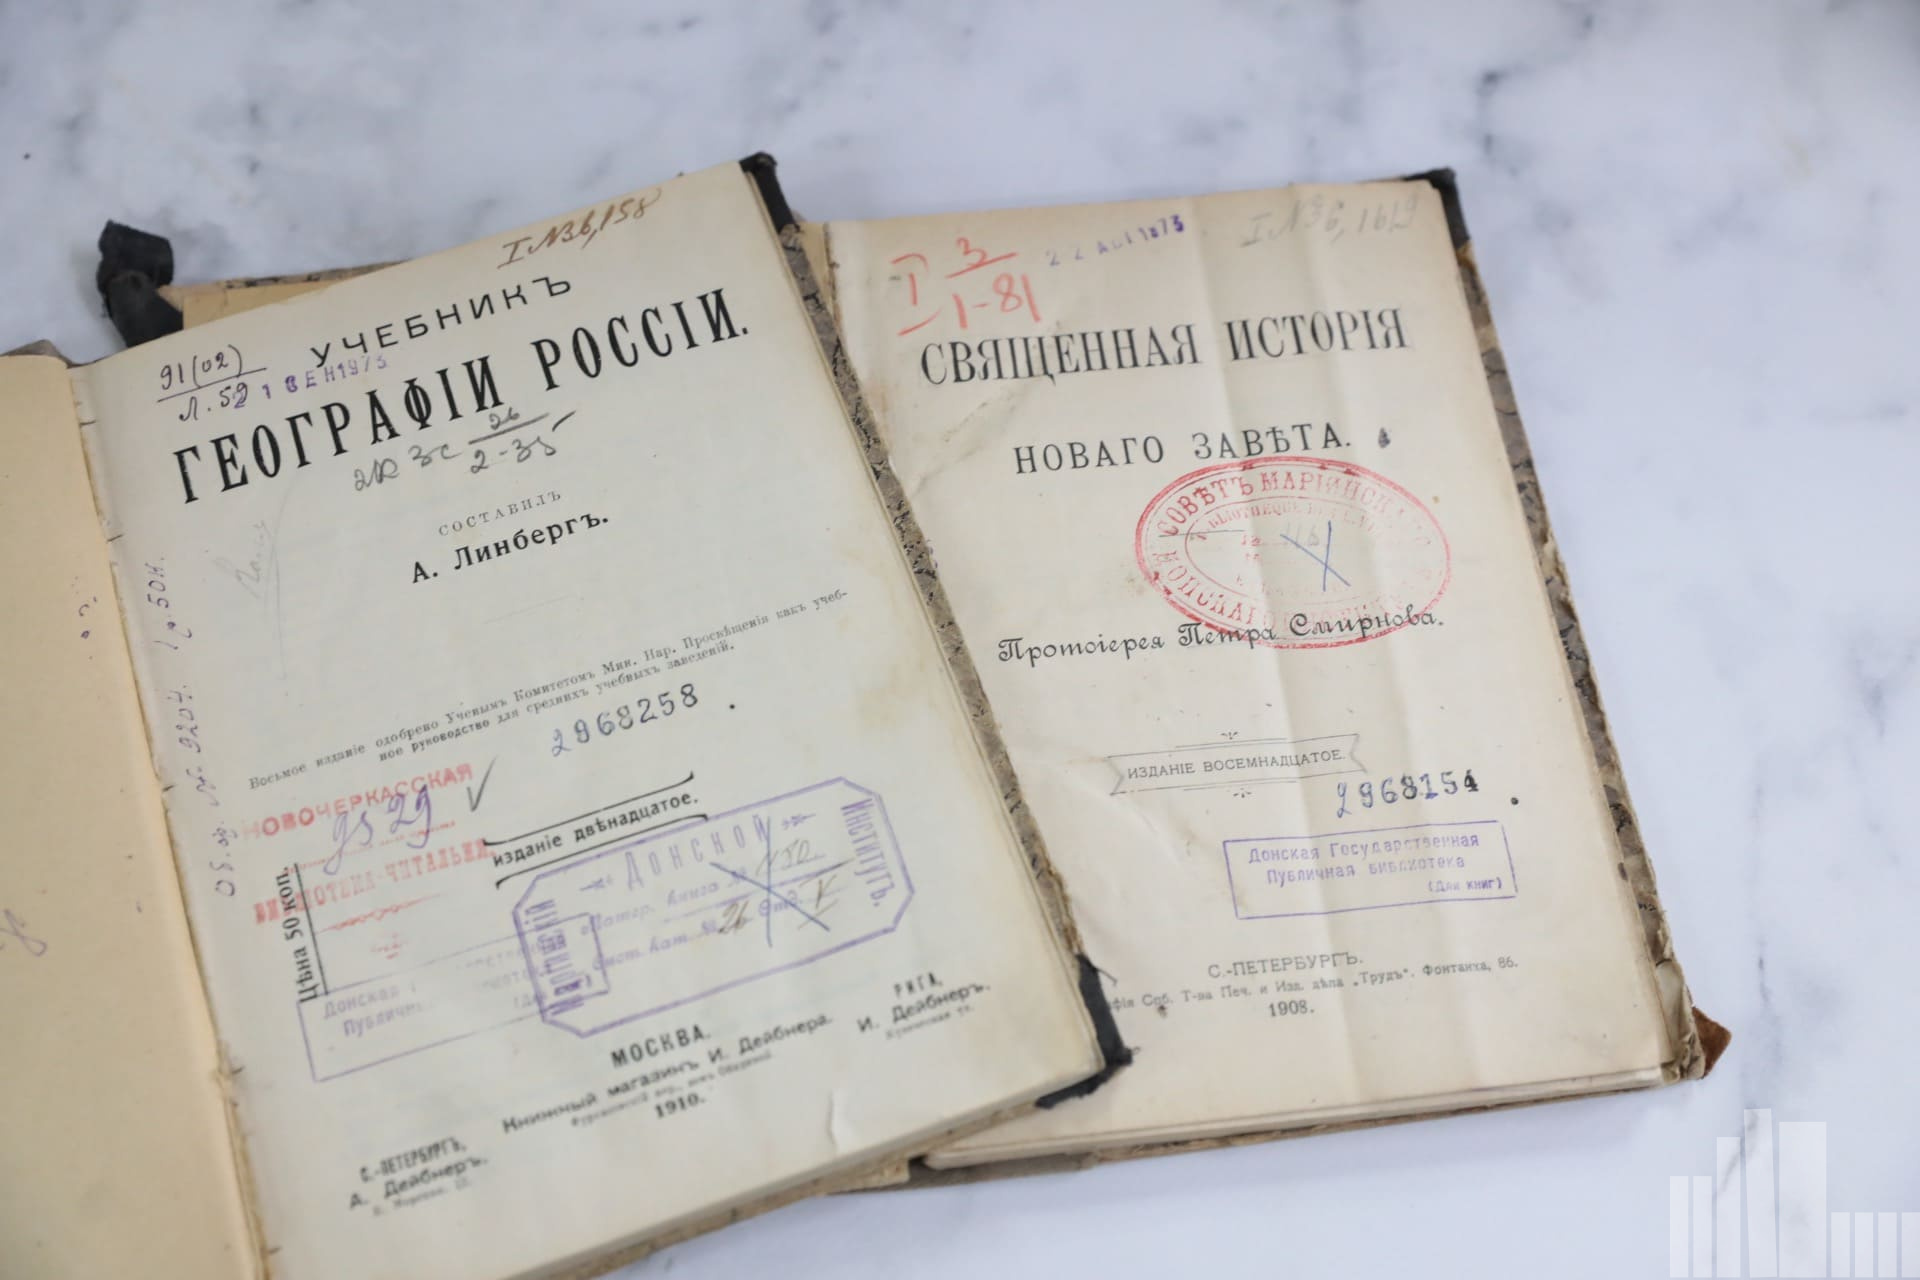 I N36,158
УЧЕБНИКЪ
91(02)
Л.59
21 СЕН 1973
ГЕОГРАФІИ РОССІИ.
26
2-35
СОСТАВИЛЪ
А. Линбергъ.
Восьмое изданіе одобрено Ученымъ Комитетомъ Мин. Нар. Просвѣщенія какъ учеб-
ное руководство для среднихъ учебныхъ заведеній.
2968258
НОВОЧЕРКАССКАЯ
БИБЛІОТЕКА-ЧИТАЛЬНЯ
изданіе двѣнадцатое.
Цѣна 50 коп.
Донской
Институтъ.
Матер. книга № 150
Сист. кат. № 26 Отд. V
Маріинскій
Донская
Публичн
МОСКВА.
Книжный магазинъ И. Дейбнера.
1910.
РИГА,
И. Дейбнеръ.
С.-ПЕТЕРБУРГЪ,
А. Дейбнеръ.
I 3
1-81
22 АВГ 1973
I N36,1619
СВЯЩЕННАЯ ИСТОРІЯ
НОВАГО ЗАВѢТА.
СОВѢТЪ МАРІИНСКАГО
ДОНСКАГО
Протоіерея Петра Смирнова.
ИЗДАНІЕ ВОСЕМНАДЦАТОЕ.
2968154
Донская Государственная
Публичная Библиотека
(Для книг)
С.-ПЕТЕРБУРГЪ.
Спб. Т-ва Печ. и Изд. дѣла „Трудъ“. Фонтанка, 86.
1908.